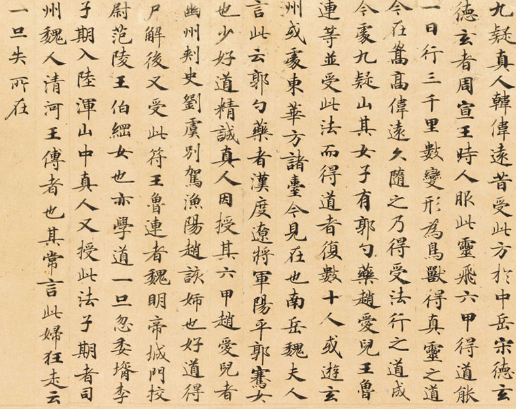 九疑真人韓偉遠昔受此方於中岳宋德玄
德玄者周宣王時人服此靈飛六甲得道能
一日行三千里數變形為鳥獸得真靈之道
今在嵩高偉遠久隨之乃得受法行之道成
今處九疑山其女子有郭勺藥趙愛兒王魯
連等並受此法而得道者復數十人或遊玄
州或處東華方諸臺今見在也南岳魏夫人
言此云郭勺藥者漢度遼將軍陽平郭騫女
也少好道精誠真人因授其六甲趙愛兒者
幽州刺史劉虞別駕漁陽趙該姊也好道得
尸解後又受此符王魯連者魏明帝城門校
尉范陵王伯綱女也亦學道一旦忽委壻李
子期入陸渾山中真人又授此法子期者司
州魏人清河王傅者也其常言此婦狂走云
一旦失所在